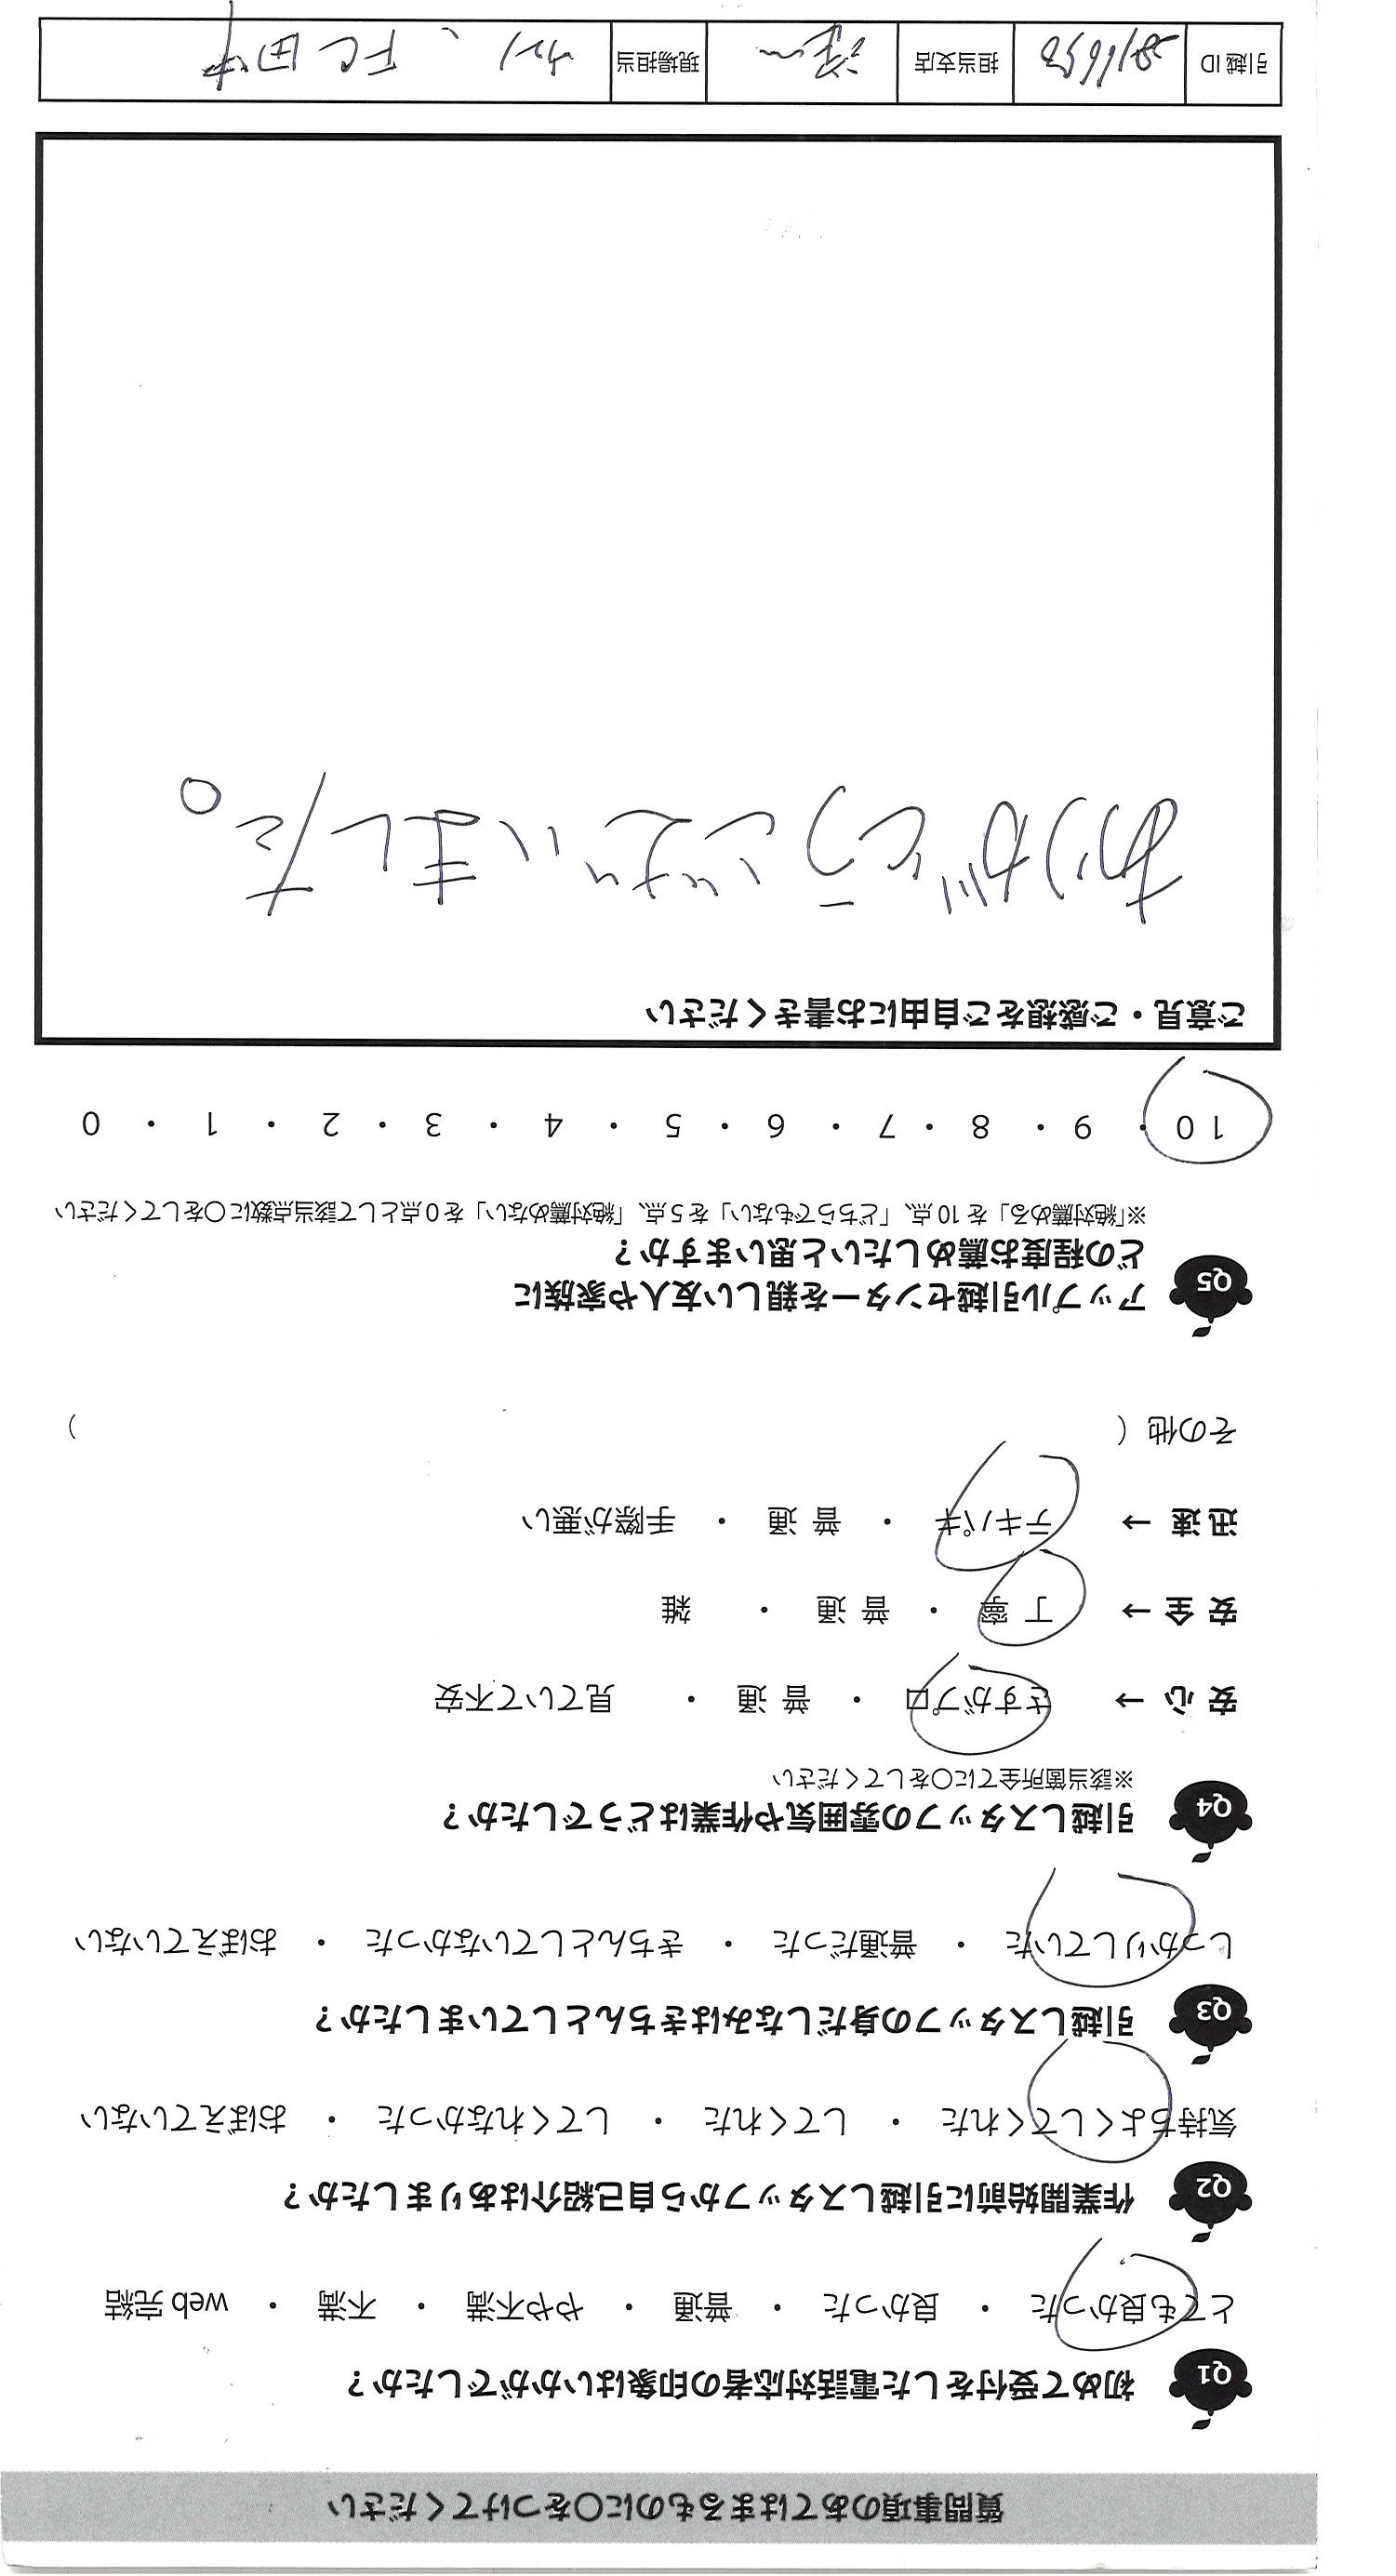 質問事項のあてはまるものに〇をつけてください
Q1 初めて受付をした電話対応者の印象はいかがでしたか？
とても良かった ・ 良かった ・ 普通 ・ やや不満 ・ 不満 ・ web 完結
Q2 作業開始前に引越しスタッフから自己紹介はありましたか？
気持ちよくしてくれた ・ してくれた ・ してくれなかった ・ おぼえていない
Q3 引越しスタッフの身だしなみはきちんとしていましたか？
しっかりしていた ・ 普通だった ・ きちんとしていなかった ・ おぼえていない
Q4 引越しスタッフの雰囲気や作業はどうでしたか？
※該当箇所全てに〇をしてください
安 心 → さすがプロ ・ 普 通 ・ 見ていて不安
安 全 → 丁 寧 ・ 普 通 ・ 雑
迅 速 → テキパキ ・ 普 通 ・ 手際が悪い
その他（ ）
Q5 アップル引越センターを親しい友人や家族に
どの程度お薦めしたいと思いますか？
※「絶対薦める」を 10 点、「どちらでもない」を 5 点、「絶対薦めない」を 0 点として該当点数に〇をしてください
10 ・ 9 ・ 8 ・ 7 ・ 6 ・ 5 ・ 4 ・ 3 ・ 2 ・ 1 ・ 0
ご意見・ご感想をご自由にお書きください
ありがとうございました。
引越 ID 担当支店 現場担当 FC 田中